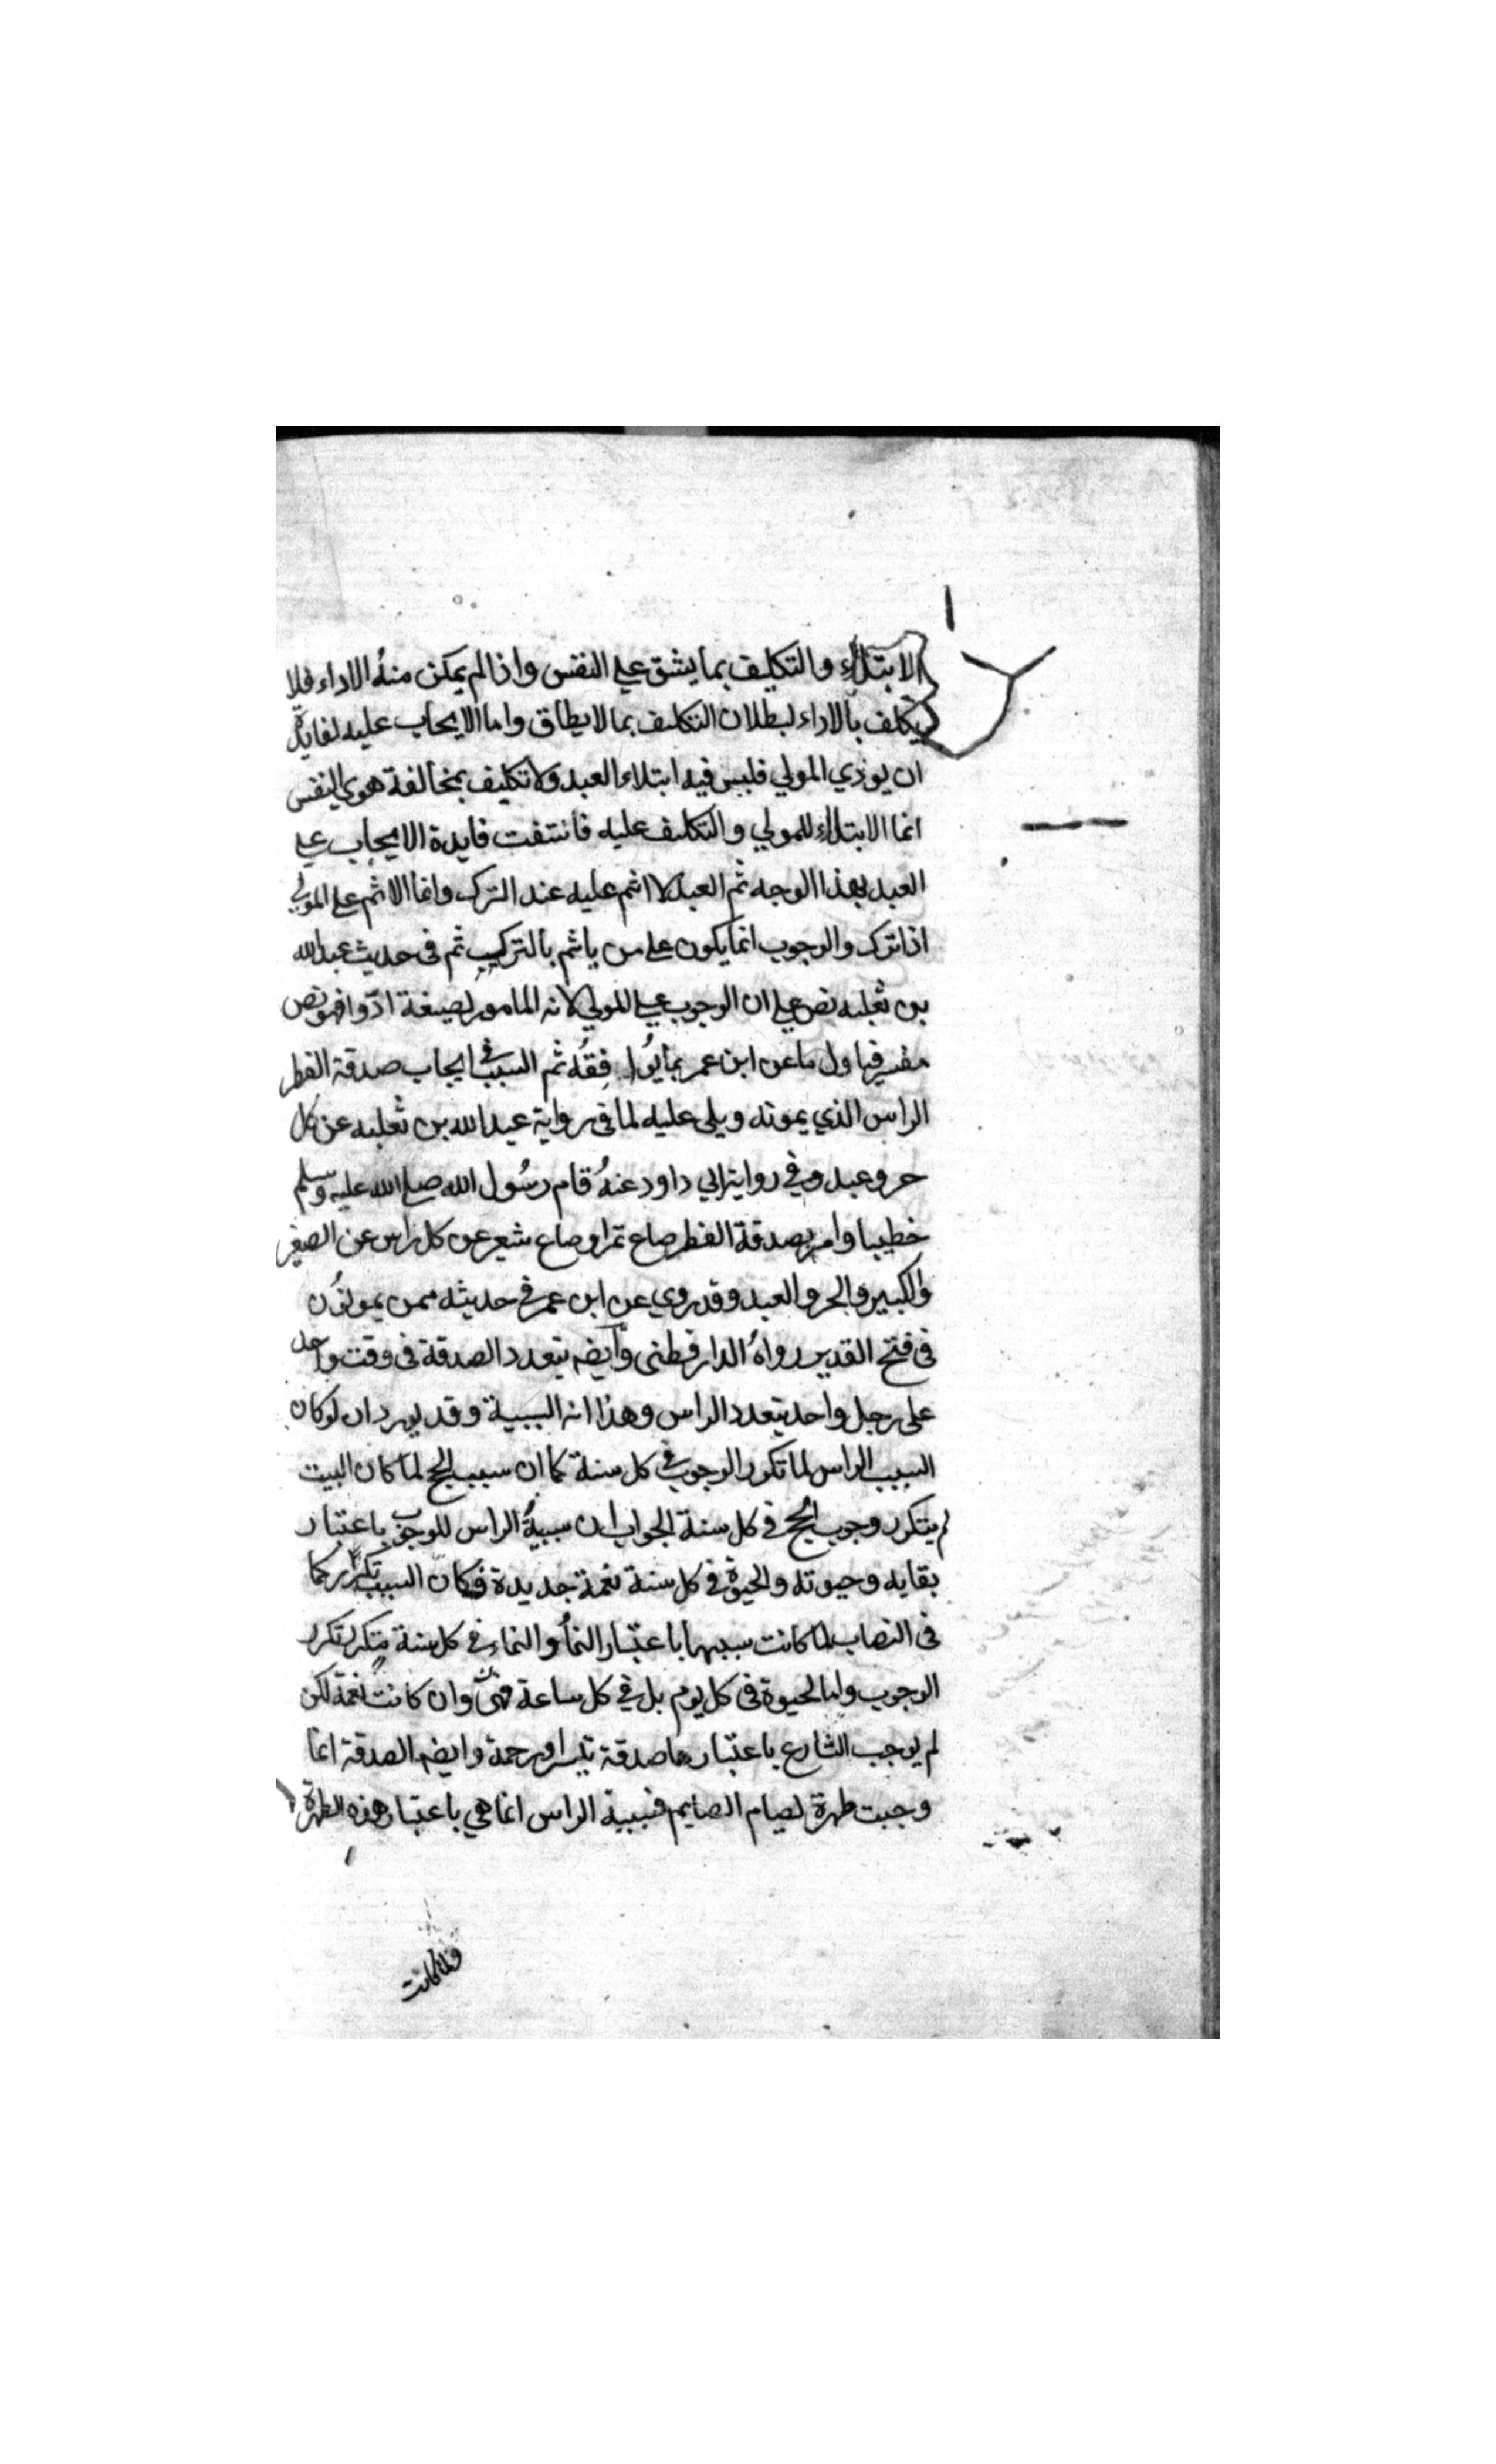 الابتلاء والتكليف بما يشق علي النفس واذا لم يمكن منهُ الاداء فلا
يكلف بالاداء لبطلان التكليف بما لا يطاق واما الايجاب عليه لفايدة
ان يودي المولي فليس فيه ابتلاء العبد ولا تكليف بمخالفة هوي النفس
انما الابتلاء للمولي والتكليف عليه فانتفت فايدة الايجاب علي
العبد بهذا الوجه ثم العبد لا اثم عليه عند الترك وانما الاثم علي المولي
اذا ترك والوجوب انما يكون علي من ياثم بالترك ثم في حديث عبد الله
بن ثعلبه نص علي ان الوجوب علي المولي لانه المامور لصيغة ادّوا فهو نص
مفسر فياول ما عن ابن عمر بما فِقُه ثم السبب في ايجاب صدقة الفطر
الراس الذي يمونه ويلي عليه لما في رواية عبد الله بن ثعلبه عن كل
حر وعبد وفي رواية ابي داود عنهُ قام رسُول الله صلي الله عليه وسلم
خطيبا وامر بصدقة الفطر صاع تمر او صاع شعير عن كل راس عن الصغير
والكبير والحر والعبد وقد روي عن ابن عمر في حديثه ممن يمونُون
في فتح القدير رواهُ الدار قطني وايضه يتعدد الصدقة في وقت واحد
علي رجل واحد يتعدد الراس وهذا انه السببية وقد يورد ان لو كان
السبب الراس لما تكرر الوجوب في كل سنة كما ان سبب الحج لما كان البيت
لم يتكرر وجوب الحج في كل سنة الجواب ان سببيةُ الراس للوجوب باعتبار
بقايه وحيوته والحيوة في كل سنة نعمة جديدة فكان السبب كما
في النصاب لما كانت سببها باعتبار النمأ والنماء في كل سنة متكرر تكرر
الوجوب واما الحيوة في كل يوم بل في كل ساعة فهي وان كانت نعمة لكن
لم يوجب الشارع باعتبارها صدقة تيسرا ورحمة وايضه الصدقة انما
وجبت طهرة لصيام الصايم فسببية الراس انما هي باعتبار هذه الطهرة
فلما كانت